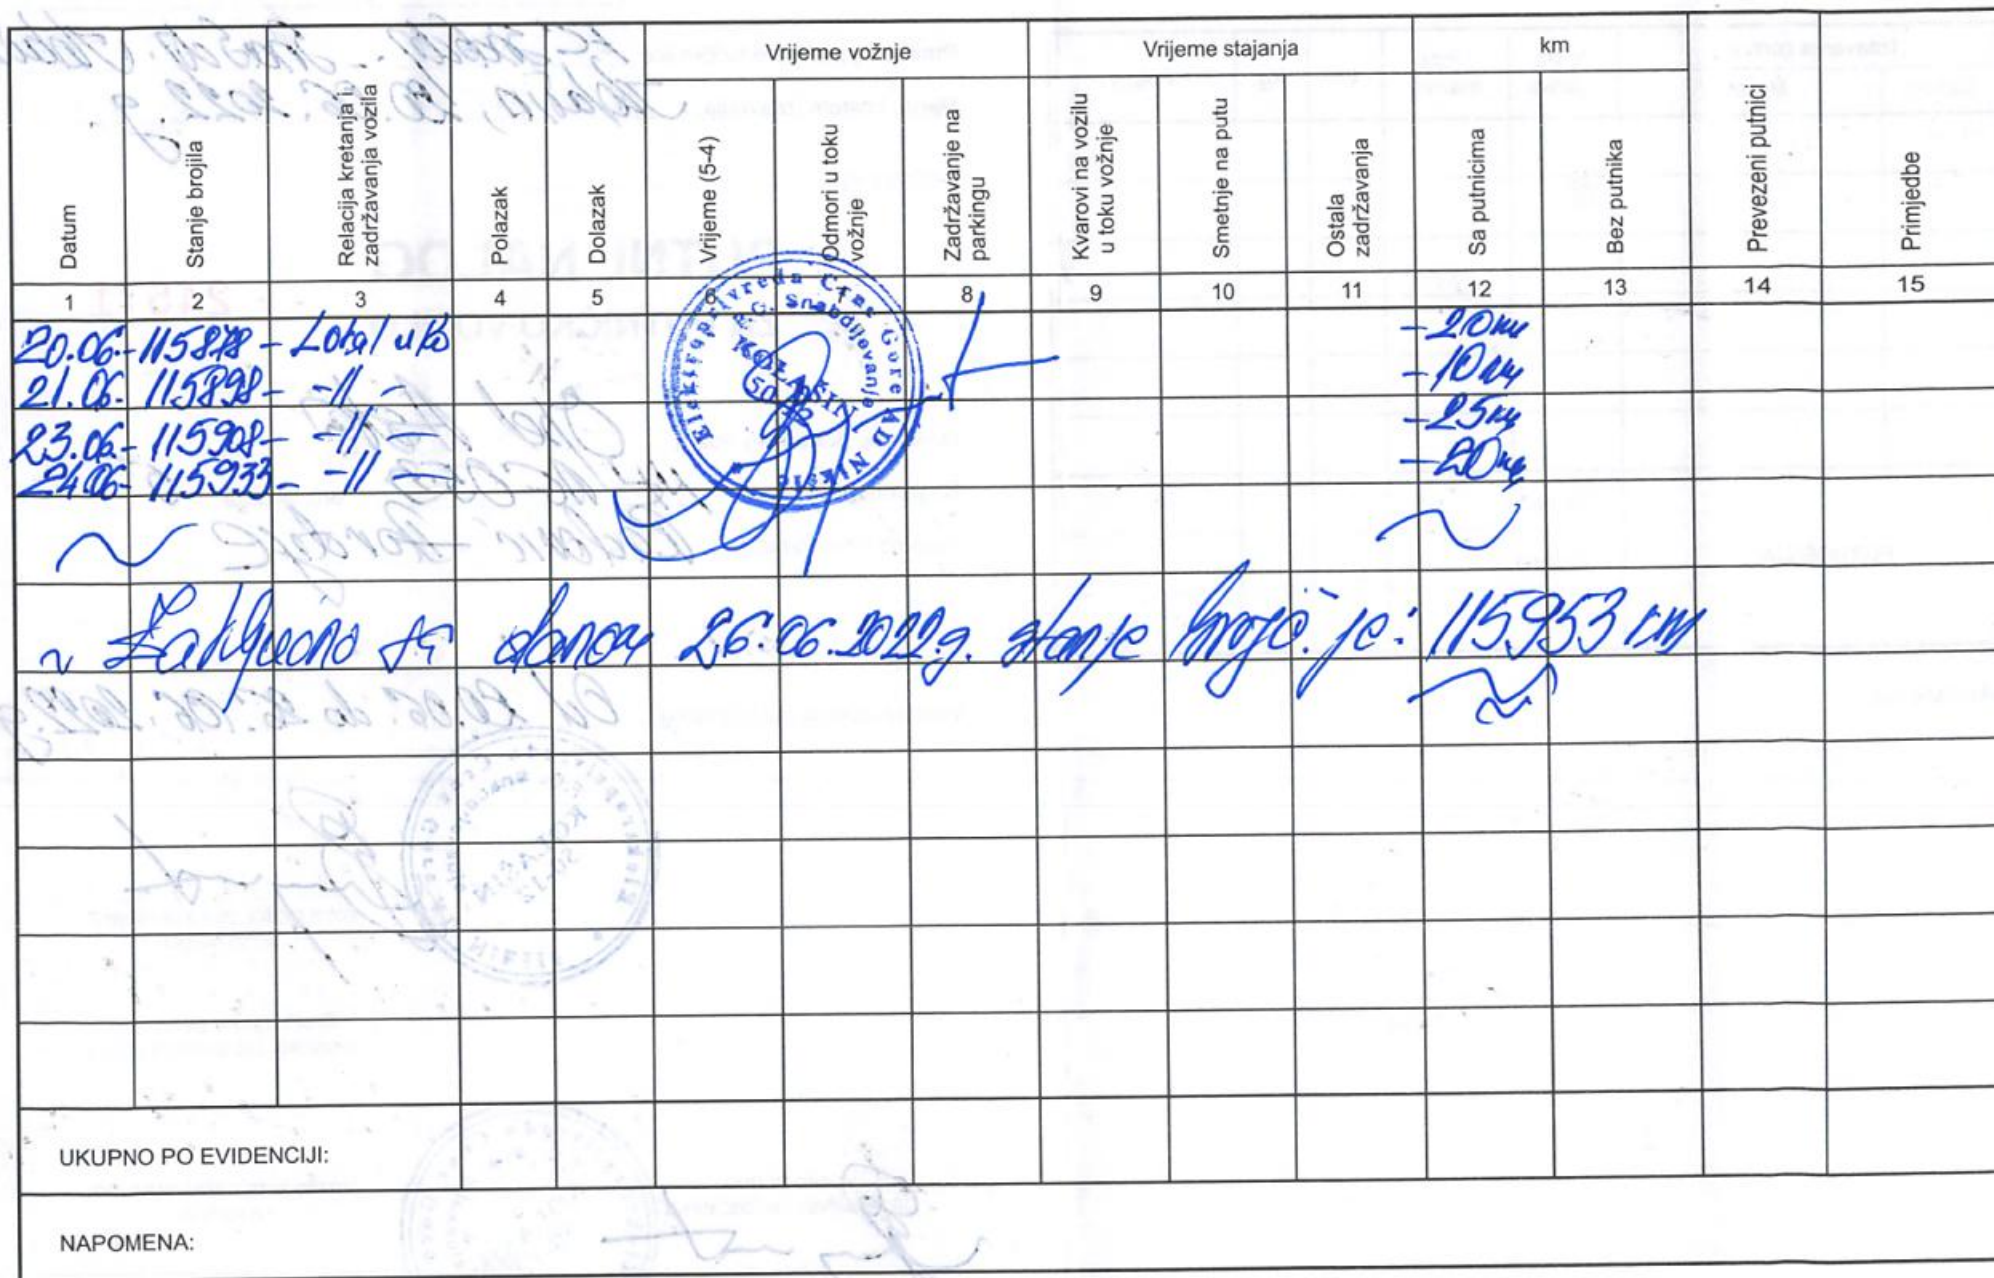 Vrijeme vožnje
Vrijeme stajanja
km
Datum
Stanje brojila
Relacija kretanja i
zadržavanja vozila
Polazak
Dolazak
Vrijeme (5-4)
Odmori u toku
vožnje
Zadržavanje na
parkingu
Kvarovi na vozilu
u toku vožnje
Smetnje na putu
Ostala
zadržavanja
Sa putnicima
Bez putnika
Prevezeni putnici
Primjedbe
1 2 3 4 5 6 7 8 9 10 11 12 13 14 15
20.06.- 115878 - Lokal u Ko - 20 km
21.06. 115898 - -11 - - 10 km
23.06.- 115908 - -11 - - 25 km
24.06- 115933 - -11 - - 20 km
Elektroprivreda Crne Gore AD Nikšić
Snabdijevanje
KOLAŠIN
~ Zaključno sa danom 26.06.2022.g. stanje brojč. je: 115953 km
UKUPNO PO EVIDENCIJI:
NAPOMENA: